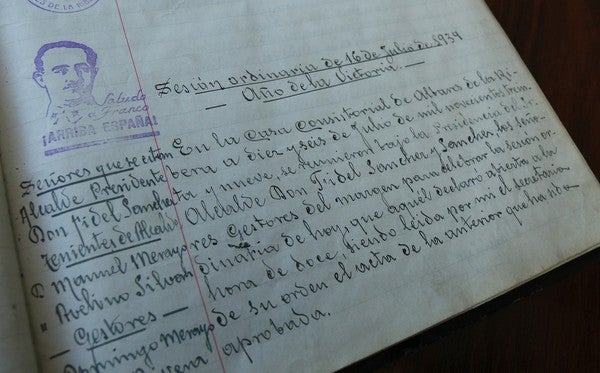 DE LA RIB
Saludo
a Franco
¡ARRIBA ESPAÑA!
Sesión ordinaria de 16 de Julio de 1939
— Año de la Victoria. —
Señores que se citan
Alcalde Presidente
Don Fidel Sanchez
Tenientes de Alcalde
D Manuel Merayo
" Avelino Silván
— Gestores —
Domingo Merayo
En la Casa Consistorial de Albares de la Ri-
bera a diez y seis de Julio de mil novecientos trein-
ta y nueve, se reunieron bajo la Presidencia del Sr.
Alcalde Don Fidel Sanchez y Sanchez, los seño-
res Gestores del margen para celebrar la sesión or-
dinaria de hoy, que aquél declaró abierta a la
hora de doce, siendo leída por mí el secretario
de su orden el acta de la anterior que ha sido
aprobada.